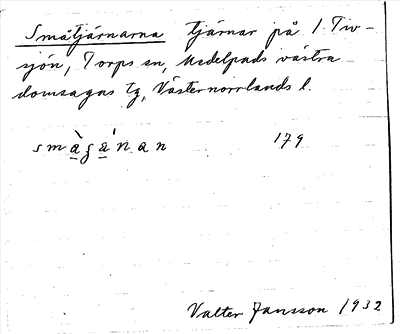 Småtjärnarna tjärnar på 1. Tiv-
sjön, Torps sn, Medelpads västra
domsagas tg, Västernorrlands l.
179
Valter Jansson 1932